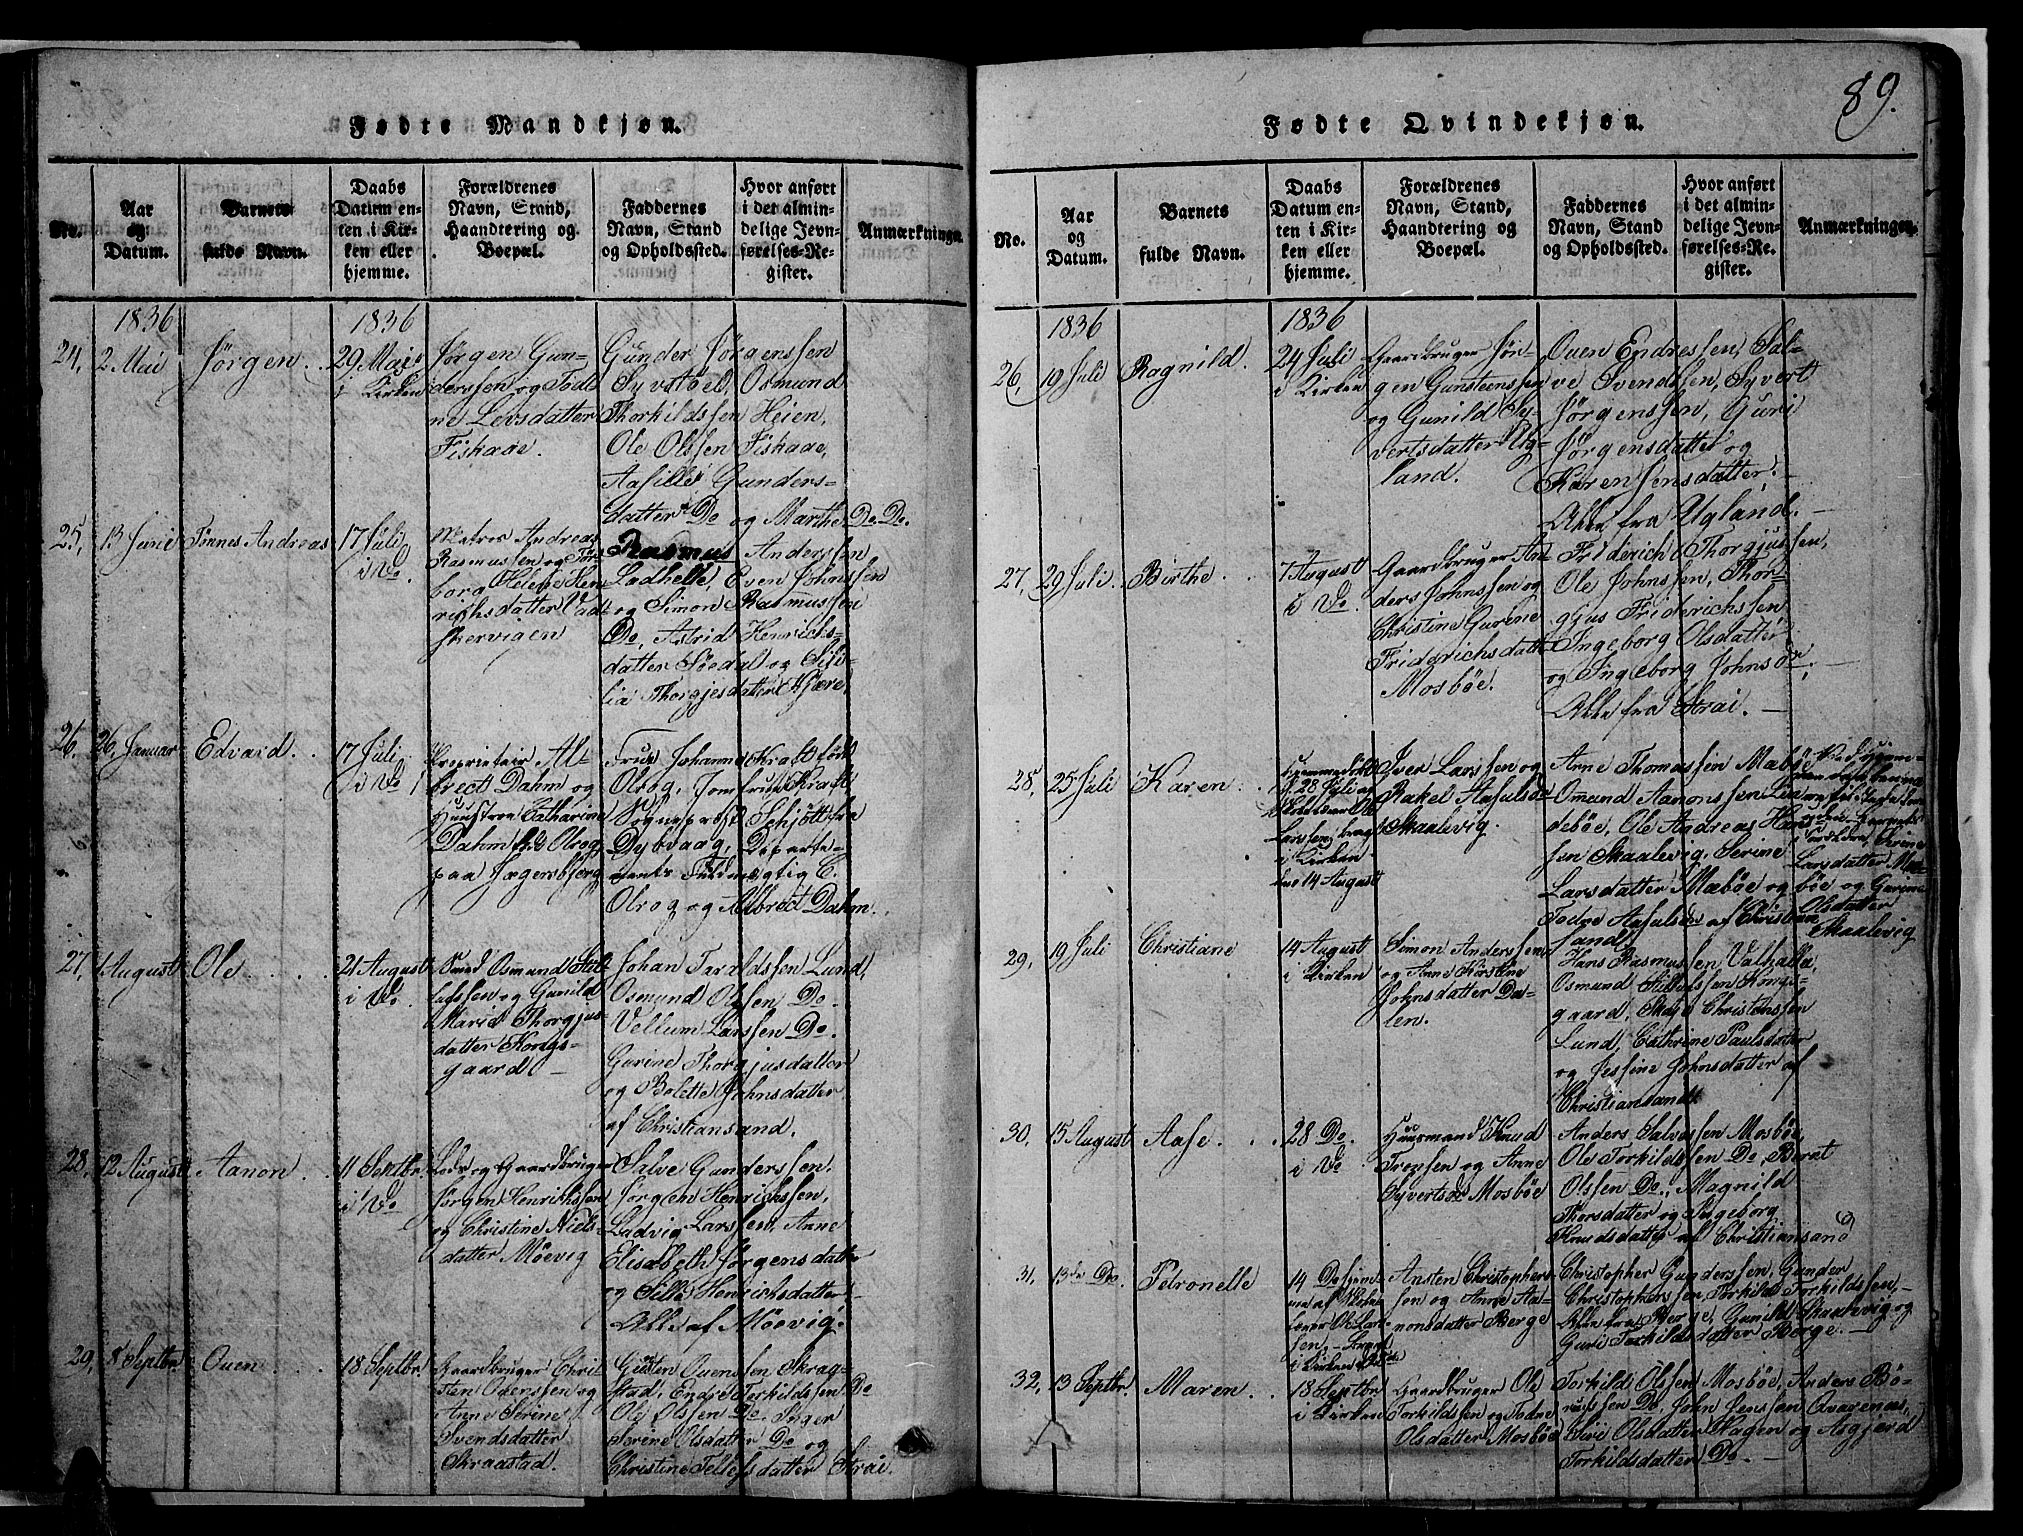 89.
Fødte Mandkjøn.
No.
Aar
og
Datum.
Barnets
fulde Navn.
Daabs
Datum en-
ten i Kir-
ken eller
hjemme.
Forældrenes
Navn, Stand,
Haandtering og
Boepæl.
Faddernes
Navn, Stand
og Opholdssted.
Hvor anført
i det almin-
delige Jevn-
førelses-Re-
gister.
Anmærkninger.
1836
1836
24,
2 Mai
Jørgen
29 Mai
i Kirken
Jørgen Gun-
derssen og Tod-
ne Levsdatter
Fiskaae.
Gunder Jørgenssen
Syvstøed, Osmund
Thorkildssen Heien,
Ole Olssen Fiskaae,
Aasille Gunders-
datter Do og Marthe Do Do.
25,
13 Junii
Tønnes Andreas
17 Juli
i Do.
Matros Andreas
Rasmussen og Tor-
borg Helene Hen-
richsdatter Vadt-
skervigen
Rasmus Anderssen
Ladhelle, Even Johnssen
og Simon Rasmussen
Do, Astrid Henrichs-
datter Søedal og Sisi-
lia Thorgjesdatter Kjære,
26,
26 Januar
Edvard
17 Juli
i Do
Proprietair Al-
brect Dahm og
Huustroe Catharine
Dahm fød Olrog
paa Jægersbjerg
Frue Johanne Kraft født
Olrog, Jomfrue Kraft
Sogneprest Schjøtt fra
Dybvaag, Departe-
ments Fuldmægtig C.
Olrog og Albrect Dahm.
27,
1 August
Ole
21 August
i Do.
Smed Osmund
ladssen og Gunild
Marie Thorgjus-
datter Kongs-
gaard
Johan Taraldssen Lund,
Osmund Olssen Do.
Vellum Larssen Do.
Gurine Thorgjusdatter
og Bolette Johnsdatter
af Christiansand.
28,
12 August
Aanon
11 Septbr.
i Do
Lods og Gaardbruger
Jørgen Henrichssen
og Christine Niels-
datter Møevig
Salve Gunderssen.
Jørgen Henrichssen,
Ludvig Larssen, Anne
Elisabeth Jørgensdatter
og Sille Henrichsdatter
Alle af Møevig.
29,
8 Septbr.
Ouen
18 Septbr.
Gaardbruger Chris-
ten Ouenssen og
Anne Serine
Svendsdatter
Skraastad.
Gusten Ouenssen Skrag-
stad, Endre Torkildssen Do
Ole Olssen Do. Inger
Serine Olsdatter Do og
Christine Tellefsdatter Strai.
Fødte Qvindekjøn.
No.
Aar
og
Datum.
Barnets
fulde Navn.
Daabs
Datum en-
ten i Kir-
ken eller
hjemme.
Forældrenes
Navn, Stand,
Haandtering og
Boepæl.
Faddernes
Navn, Stand
og Opholdssted.
Hvor anført
i det almin-
delige Jevn-
førelses-Re-
gister.
Anmærkninger.
1836
1836
26,
19 Juli
Ragnild.
24 Juli
i Kirken
Gaardbruger Jør-
gen Gunsteenssen
og Gunild Sy-
vertsdatter Ug-
land.
Ouen Endressen, Sal-
ve Svendssen, Syvert
Jørgenssen, Guri
Jørgensdatter og
Karen Jensdatter,
Alle fra Ugland.
27,
29 Juli.
Birthe
7 August
i Do.
Gaardbruger An-
ders Johnssen og
Christine Gurine
Friderichsdatter
Mosbøe.
Friderich Thorgjussen,
Ole Johnssen, Thor-
gjus Friderichssen
Ingeborg Olsdatter
og Ingeborg Johnsdr,
Alle fra Strai.
28,
25 Juli
Karen
Hjemmedøbt
d. 28 Juli af
Skoleholder Ole
Larssen, bragt
i Kirken
den 14 August
Iver Larssen og
Rakel Aasulsdr
Skaalevig.
Anne Thomassen Mæbøe
Omund Aanonssen Lin-
debøe, Ole Andreas Han-
sen Skaalevig, Serine
Larsdatter Mæbøe og
Todne Aasulsdr af Christian-
sand.
Ved Hjemme-
Serine
Larsdatter Mæ-
bøe og Gurine
Olsdatter
Skaalevig
29,
19 Juli
Christiane
14 August
i Kirken
Simon Anderssen
og Anne Kirstine
Johnsdatter Da-
len.
Hans Rasmussen Valhalla,
Osmund Kongs-
gaard, Christenssen
Lund, Cathrine Paulsdatter
og Jessine Johnsdatter af
Christiansand.
30,
15 August
Aase
28 Do.
i Do
Huusmand Knud
Tronsen og Anne
Syvertsdr Mosbøe
Anders Salvessen Mosbøe,
Ole Torkildssen Do, Bernt
Olssen Do., Magnild
Thorsdatter og Ingeborg
Knudsdatter af Christiansand
31,
13de Do.
Petronelle
14 Do hjem-
me af Skole-
holder Ole Lars-
sen,
i Kirken
Ansten Christophers-
sen og Anne Aa-
nonsdatter Berge
Christopher Gunderssen, Gunder
Christophersen, Torkild Torkildssen,
Alle fra Berge, Gunild Skaalevig og
Guri Torkildsdatter Berge.
32,
13 Septbr.
Maren
18 Septbr
i Kirken
Gaardbruger Ole
Torkildsen og Todne
Olsdatter Mosbøe
Torkild Olssen Mosbøe, Anders Bø-
Do, John Jenssen Qvarenæs,
Siri Olsdatter Hagen og Asgjerd
Torkildsdatter Do.